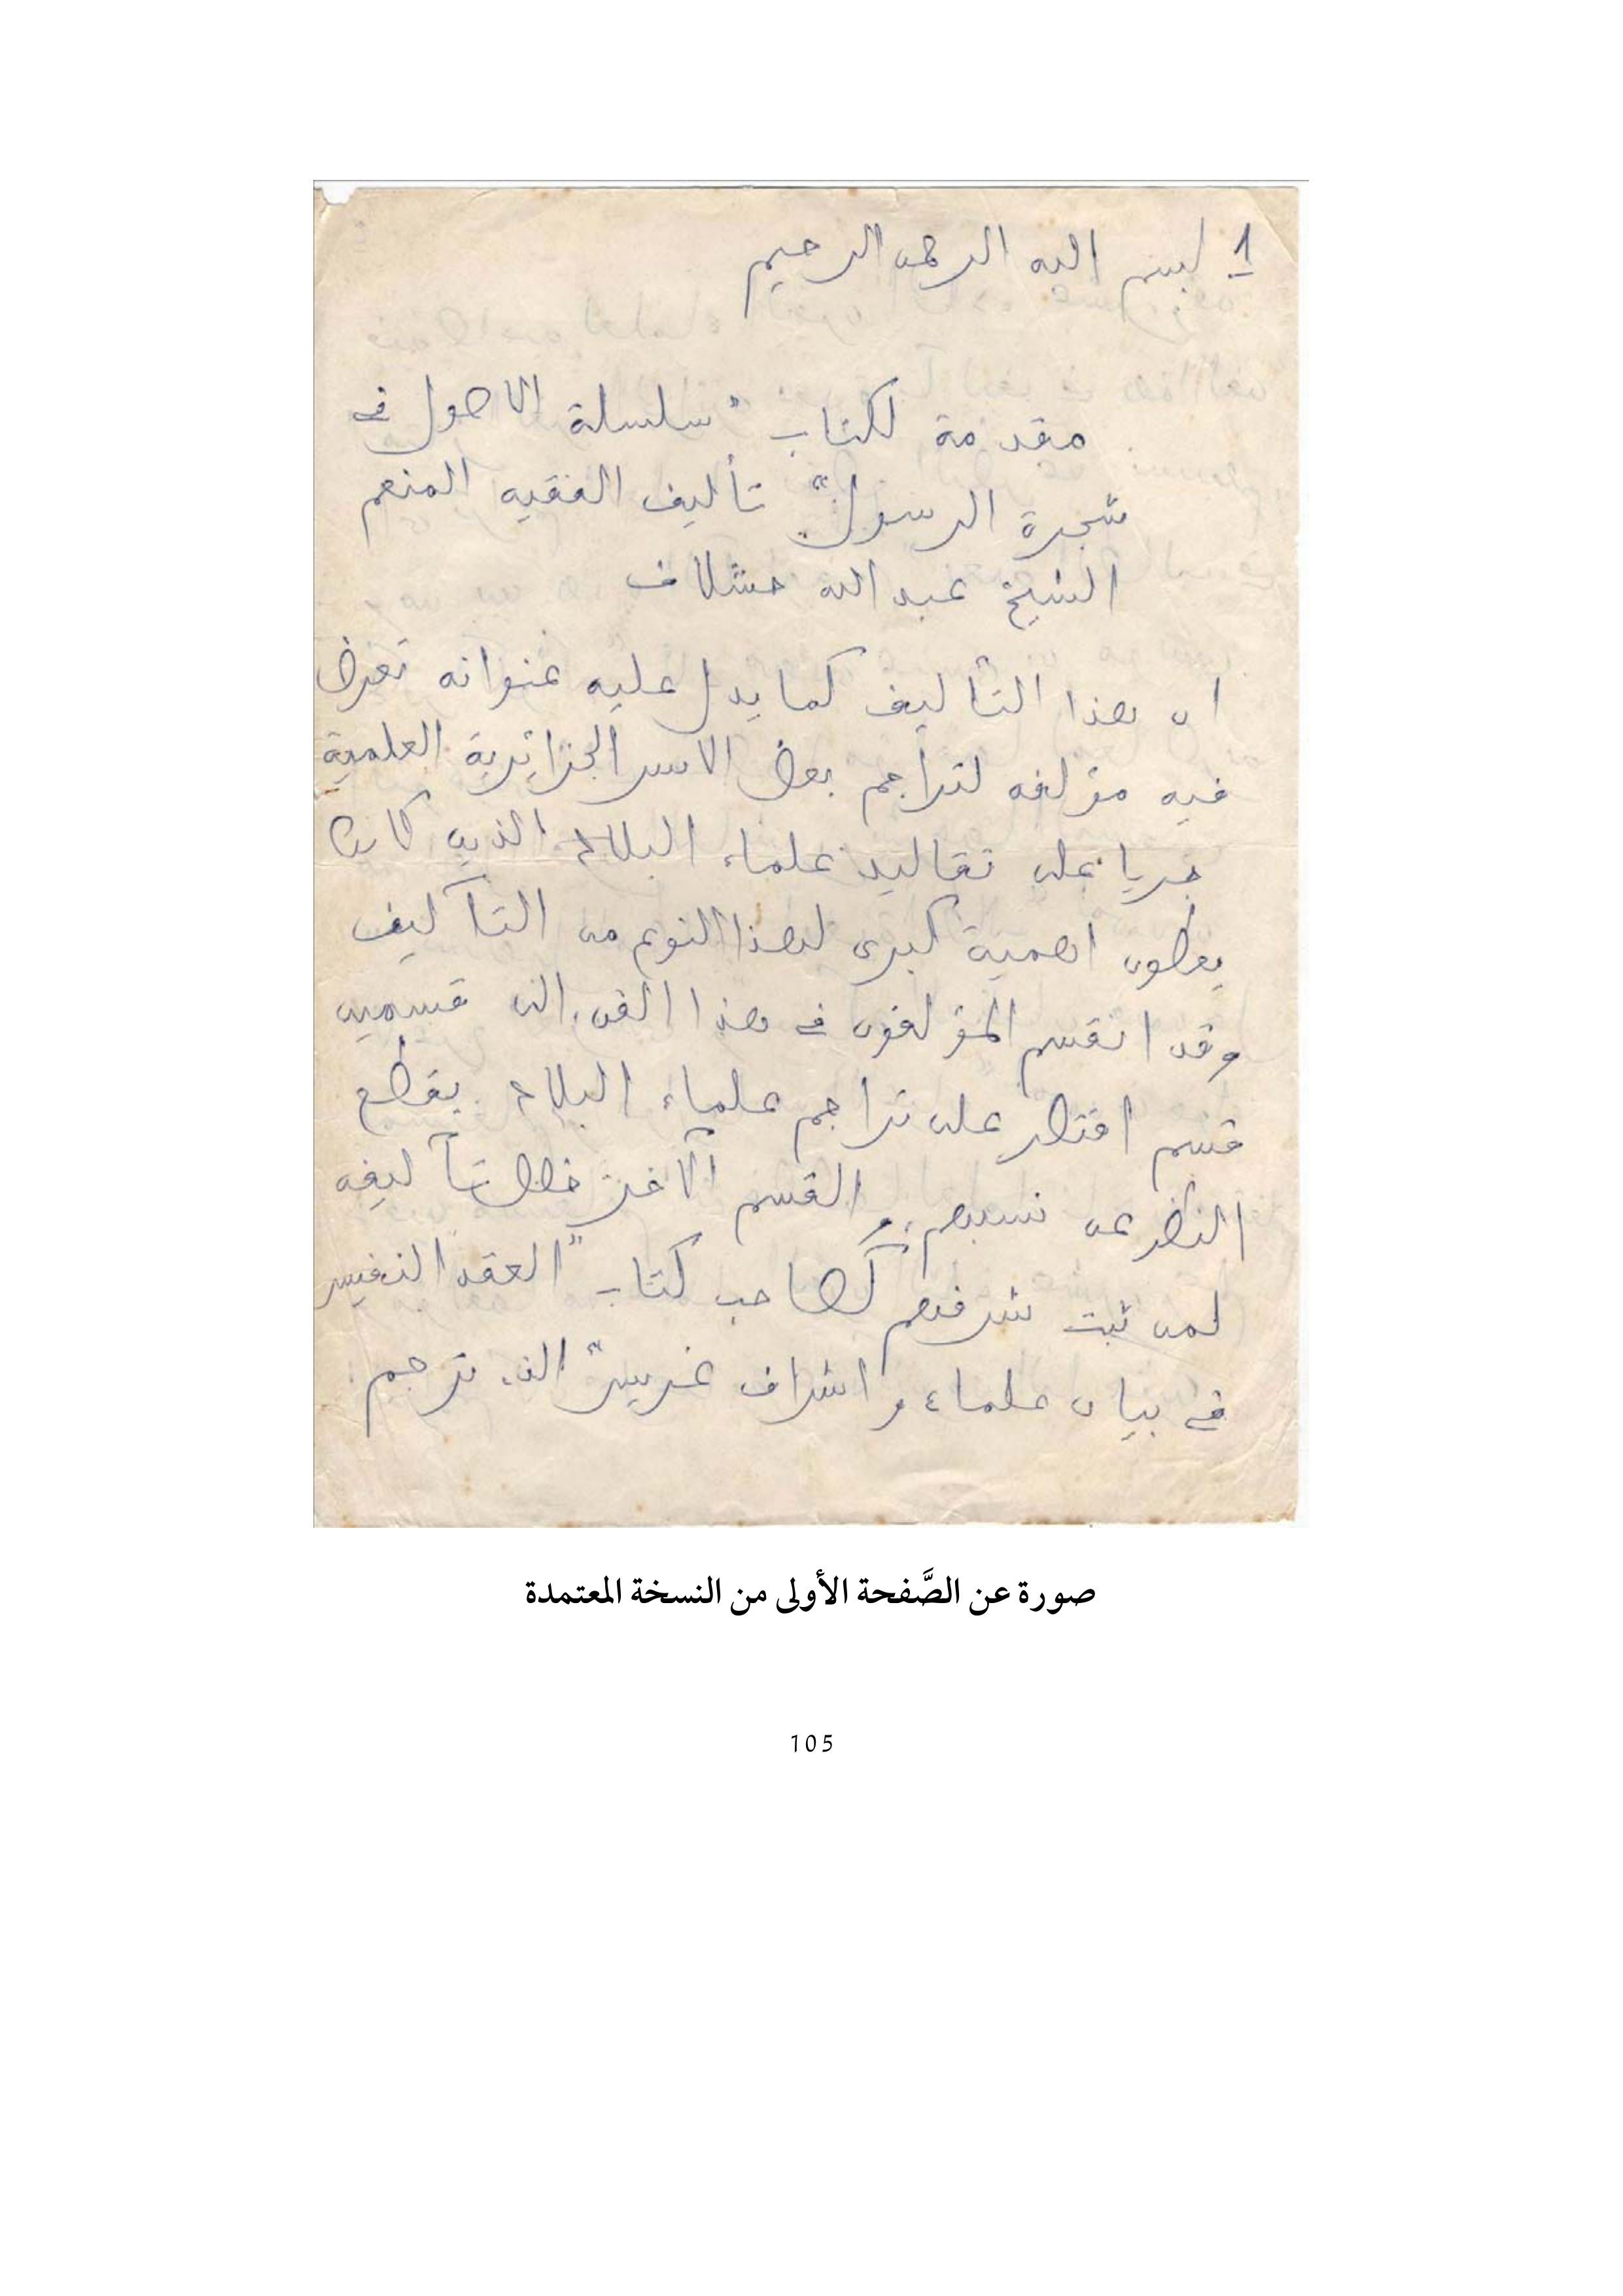 1 بسم الله الرحمن الرحيم
مقدمة لكتاب "سلسلة الاصول في
شجرة الرسول" تأليف الفقيه المنعم
الشيخ عبد الله حشلاف
ان هذا التأليف كما يدل عليه عنوانه تعرض
فيه مؤلفه لتراجم بعض الاسر الجزائرية العلمية
جريا على تقاليد علماء البلاد الذين كانوا
يعطون اهمية كبرى لهذا النوع من التآليف
وقد انقسم المؤلفون في هذا الفن الى قسمين
قسم اقتصر على تراجم علماء البلاد بقطع
النظر عن نسبهم، والقسم الآخر خصص تآليفه
لمن ثبت شرفهم كصاحب كتاب "العقد النفيس
في بيان علماء واشراف غريس" الذي ترجم
صورة عن الصَّفحة الأولى من النسخة المعتمدة
105